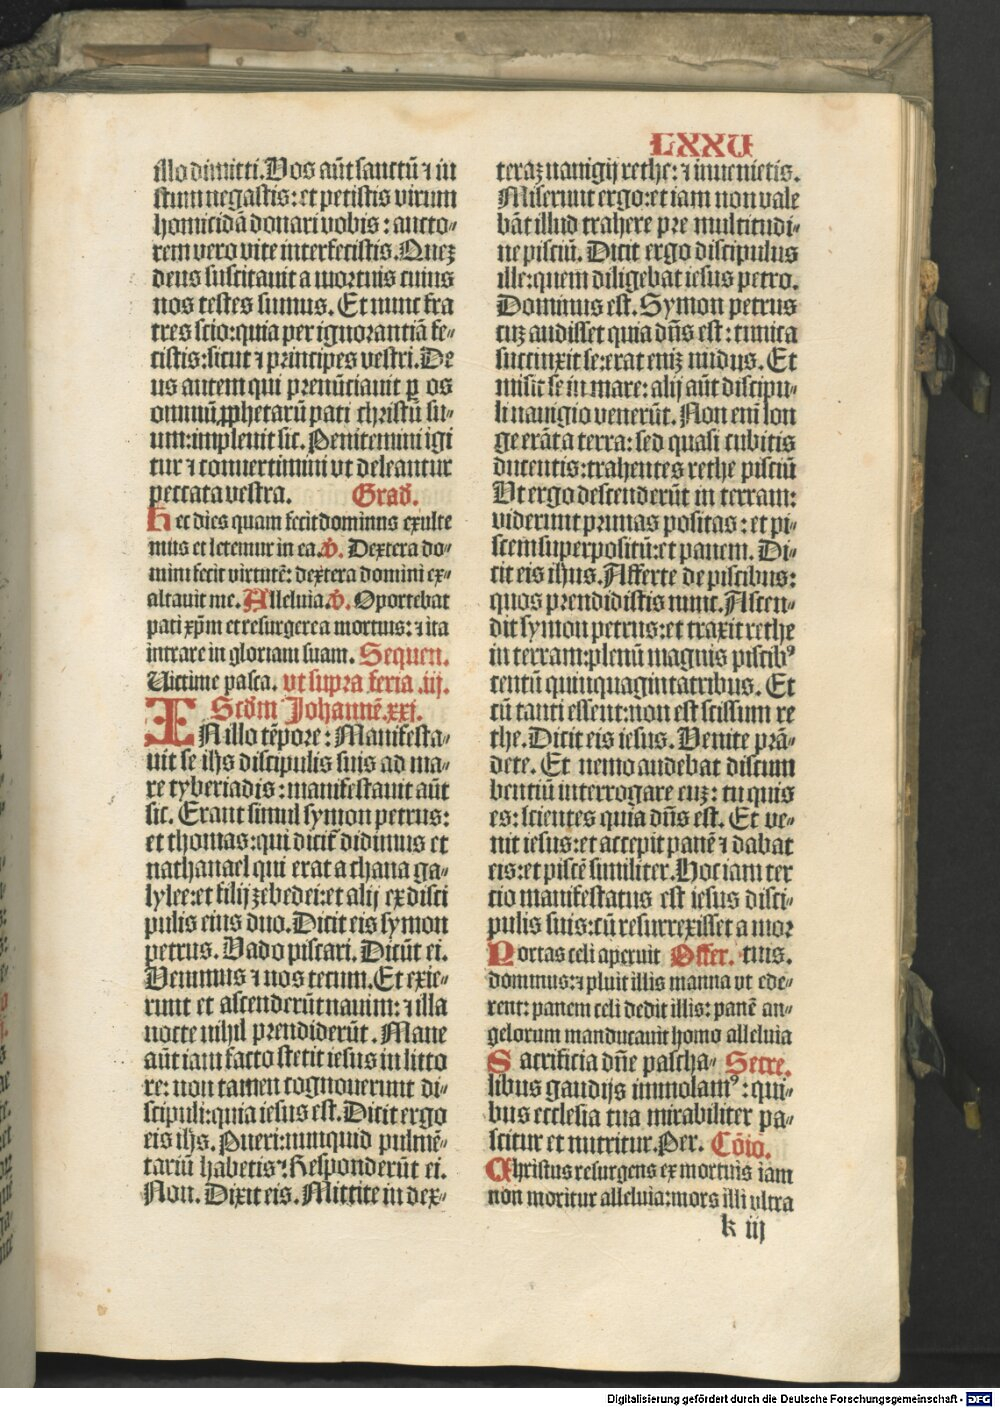 LXXV
illo dimitti. Vos aūt sanctū ⁊ iu
stum negastis: et petistis virum
homicidā donari vobis: aucto⸗
rem vero vite interfecistis. Quez
deus suscitauit a mortuis cuius
nos testes sumus. Et nunc fra
tres scio: quia per ignorantiā fe⸗
cistis: sicut ⁊ principes vestri. De
us autem qui prenūciauit ꝑ os
omniū ꝓphetarū pati christū su⸗
um: impleuit sic. Penitemini igi
tur ⁊ conuertimini vt deleantur
peccata vestra. Grad̄.
Hec dies quam fecit dominus exulte
mus et letemur in ea. ℣. Dextera do⸗
mini fecit virtutē: dextera domini ex⸗
altauit me. Alleluia. ℣. Oportebat
pati xp̄m et resurgere a mortuis: ⁊ ita
intrare in gloriam suam. Sequen.
Victime pasca. vt supra feria .iij.
Scd̄m Johannē .xxi.
IN illo tēpore: Manifesta⸗
uit se ihs discipulis suis ad ma⸗
re tyberiadis: manifestauit aūt
sic. Erant simul symon petrus:
et thomas: qui dicit̄ didimus et
nathanael qui erat a chana ga⸗
lylee: et filij zebedei: et alij ex disci
pulis eius duo. Dicit eis symon
petrus. Vado piscari. Dicūt ei.
Venimus ⁊ nos tecum. Et exie⸗
runt et ascenderūt nauim: ⁊ illa
nocte nihil prendiderūt. Mane
aūt iam facto stetit iesus in litto
re: non tamen cognouerunt di⸗
scipuli: quia iesus est. Dicit ergo
eis ihs. Pueri: nunquid pulmē⸗
tariū habetis? Responderūt ei.
Non. Dixit eis. Mittite in dex⸗
teraz nauigij rethe: ⁊ inuenietis.
Miserunt ergo: et iam non vale
bāt illud trahere pre multitudi⸗
ne pisciū. Dicit ergo discipulus
ille: quem diligebat iesus petro.
Dominus est. Symon petrus
cuz audisset quia dn̄s est: tunica
succinxit se: erat eniz nudus. Et
misit se in mare: alij aūt discipu⸗
li nauigio venerūt. Non enī lon
ge erāt a terra: sed quasi cubitis
ducentis: trahentes rethe pisciū
Vt ergo descenderūt in terram:
viderunt prunas positas: et pi⸗
scem superpositū: et panem. Di⸗
cit eis ihus. Afferte de piscibus:
quos prendidistis nunc. Ascen⸗
dit symon petrus: et traxit rethe
in terram: plenū magnis piscibꝰ
centū quinquagintatribus. Et
cū tanti essent: non est scissum re
the. Dicit eis iesus. Venite prā⸗
dete. Et nemo audebat discum
bentiū interrogare euz: tu quis
es: scientes quia dn̄s est. Et ve⸗
nit iesus: et accepit panē ⁊ dabat
eis: et piscē similiter. Hoc iam ter
tio manifestatus est iesus disci⸗
pulis suis: cū resurrexisset a mor
Portas celi aperuit Offer. tuis.
dominus: ⁊ pluit illis manna vt ede⸗
rent: panem celi dedit illis: panē an⸗
gelorum manducauit homo alleluia
Sacrificia dn̄e pascha⸗ Secre.
libus gaudijs immolamꝰ: qui⸗
bus ecclesia tua mirabiliter pa⸗
scitur et nutritur. Per. Cōio.
Christus resurgens ex mortuis iam
non moritur alleluia: mors illi vltra
k iij
Digitalisierung gefördert durch die Deutsche Forschungsgemeinschaft - DFG